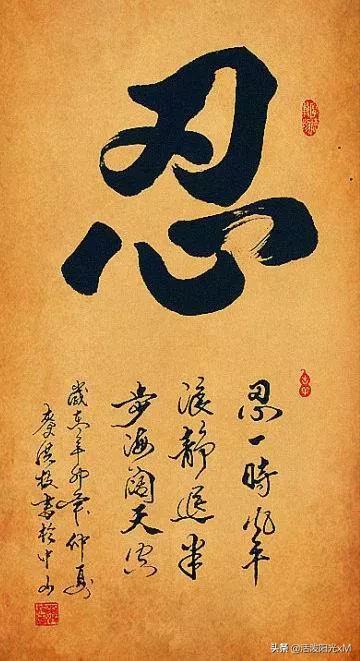 忍
忍一時风平
浪靜退半
步海阔天空
歲 仲夏
書於中山
头条 @活泼阳光xM